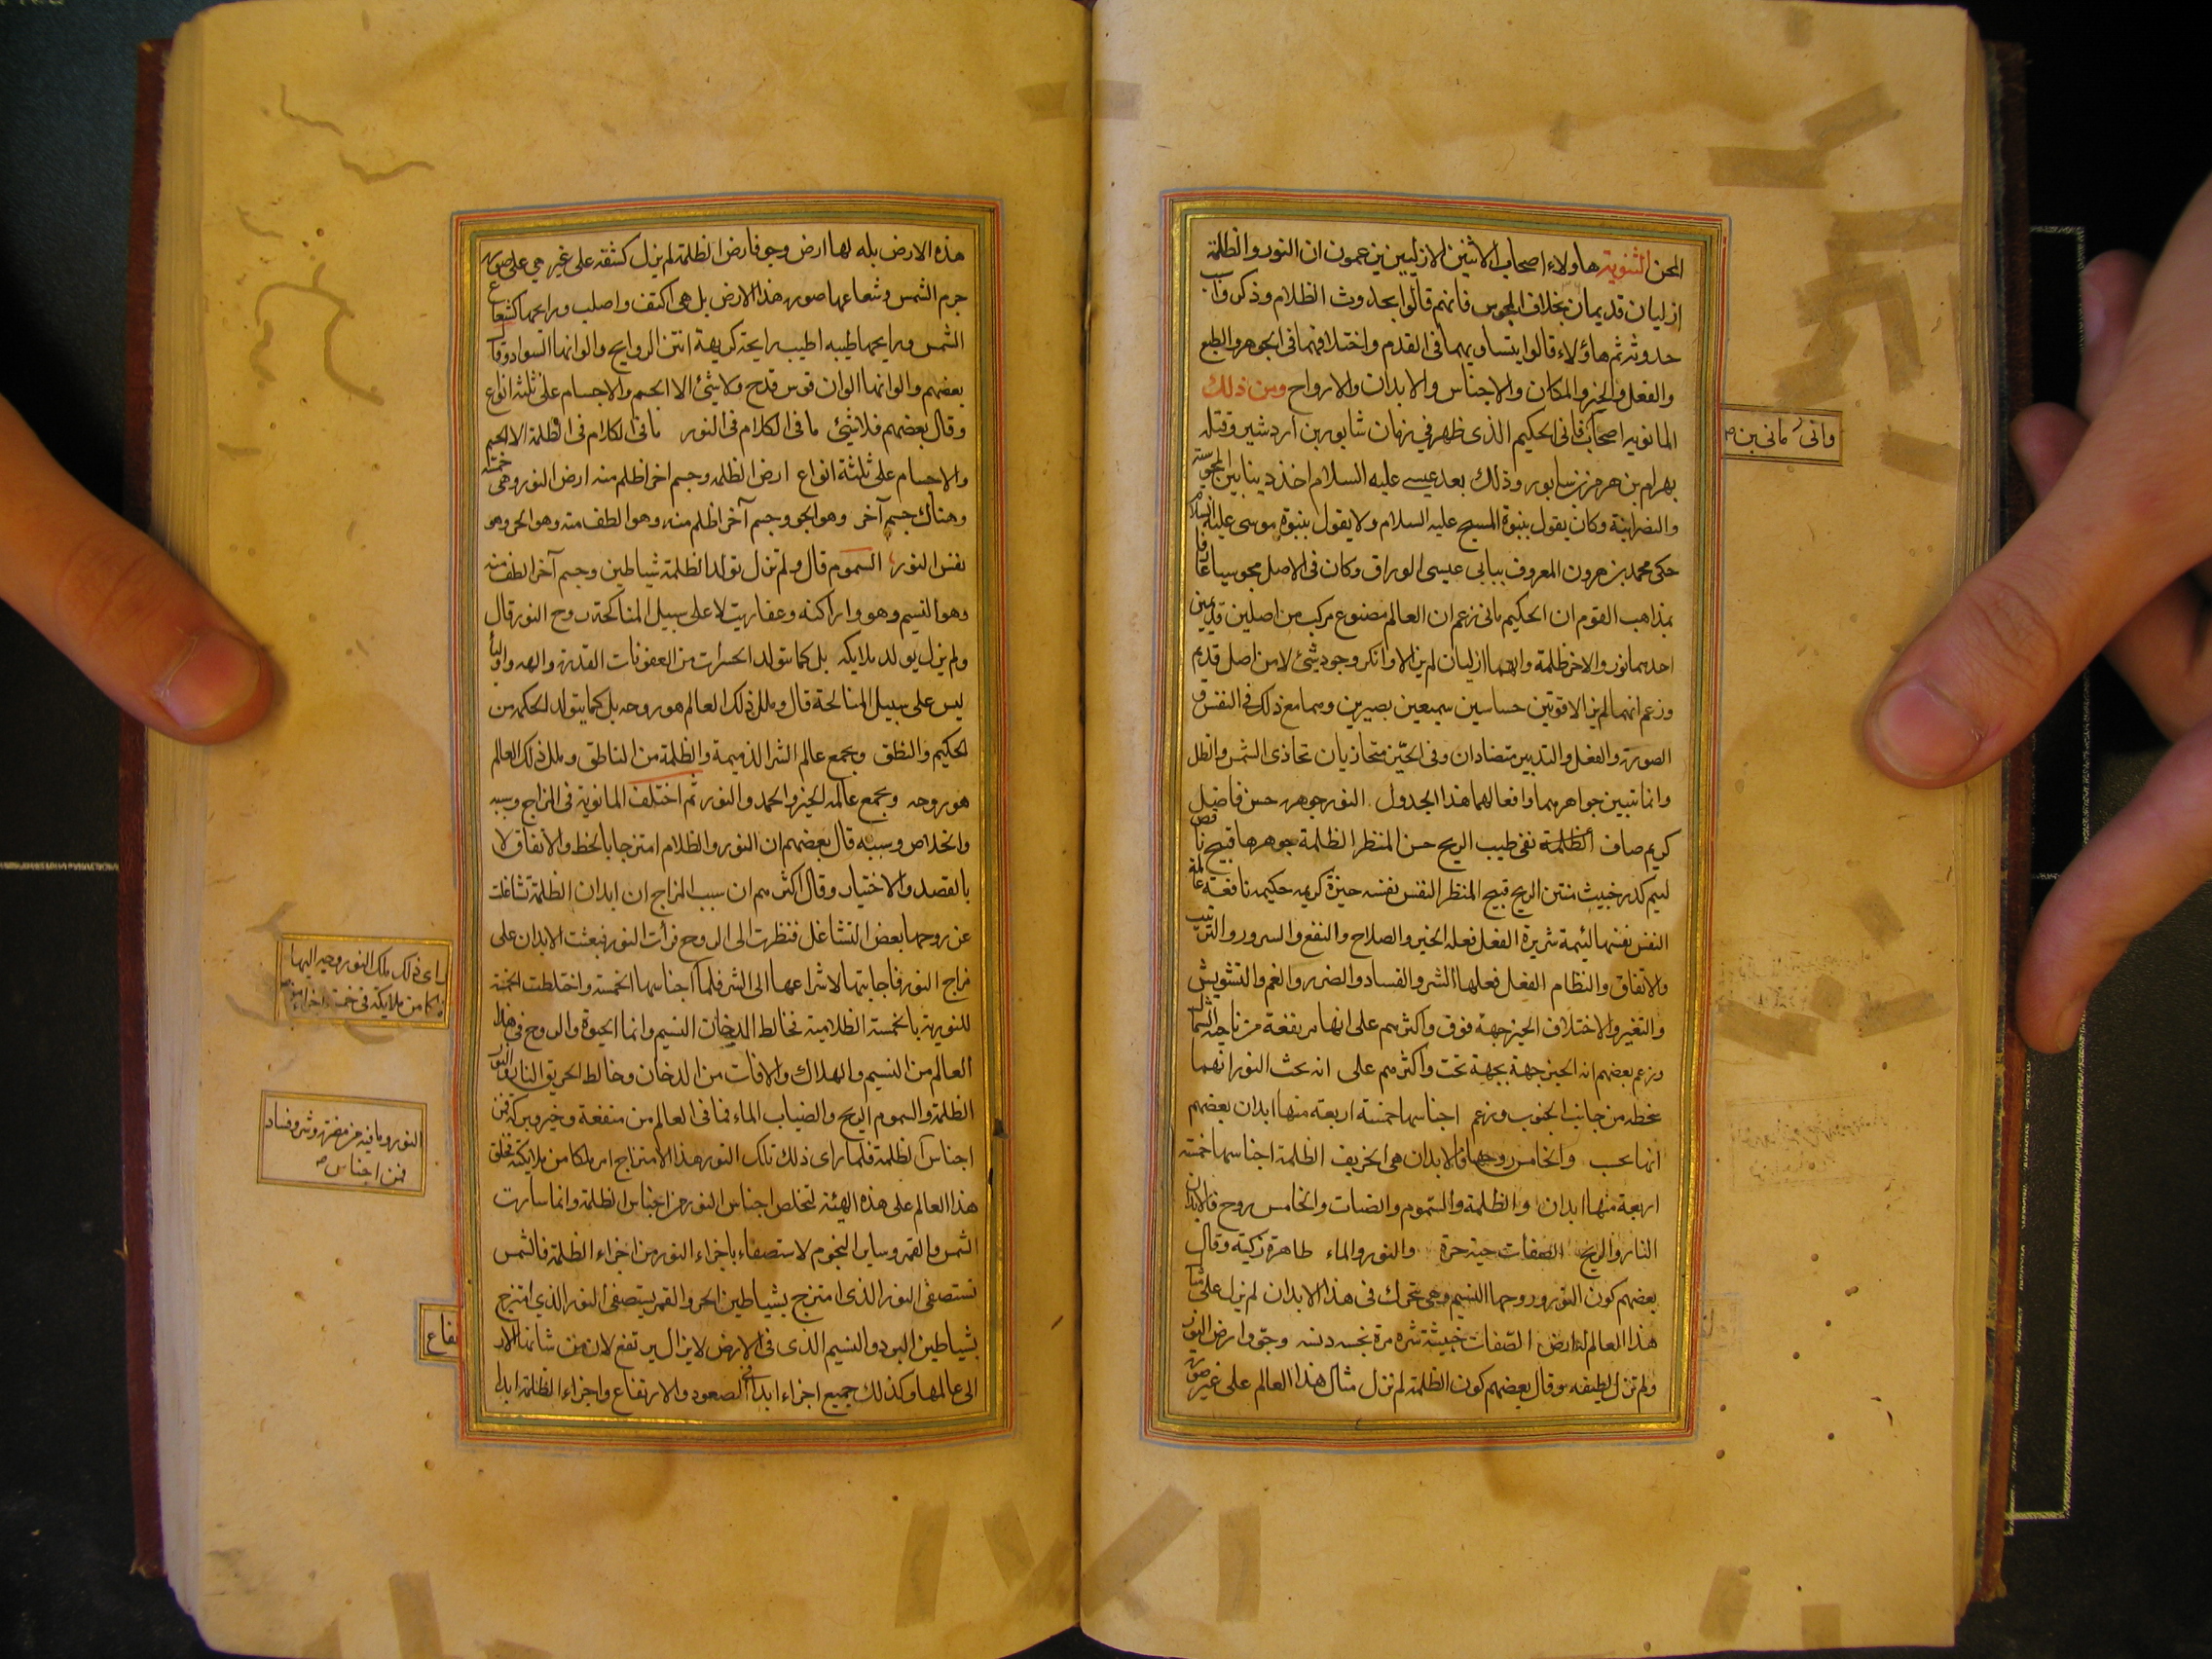 المحن الثنوية هاولاء اصحاب الاثنين الازليين يزعمون ان النور والظلمة
ازليان قديمان بخلاف المجوس فانهم قالوا بحدوث الظلام وذكروا سبب
حدوثه ثم هاؤلاء قالوا بتساويهما في القدم واختلافهما في الجوهر والطبع
والفعل والحيز والمكان والاجناس والابدان والارواح ومن ذلك
المانوية اصحاب مانى الحكيم الذى ظهر في زمان شابور بن اردشير وقتله
بهرام بن هرمز بن سابور وذلك بعد عيسى عليه السلام اخذ دينا بين المجوسية
والنصرانية وكان يقول بنبوة المسيح عليه السلام ولا يقول بنبوة موسى عليه السلام
حكى محمد بن هرون المعروف بابى عيسى الوراق وكان في الاصل مجوسيا عارفا
بمذاهب القوم ان الحكيم مانى زعم ان العالم مصنوع مركب من اصلين قديمين
احدهما نور والاخر ظلمة وانهما ازليان لم يزالا وانكر وجود شئ لا من اصل قديم
وزعم انهما لم يزالا قوتين حساسين سميعين بصيرين وهما مع ذلك في النفس و
الصورة والفعل والتدبير متضادان وفى الحيز متحاذيان تحاذى الشمس والظل
وانما تتبين جواهرهما وافعالهما هذا الجدول النور جوهره حسن فاضل
كريم صاف الظلمة نقى طيب الريح حسن المنظر الظلمة جوهرها قبيح ناقص
لئيم كدر خبيث منتن الريح قبيح المنظر النفس نفسه خيرة كريمه حكيمه نافعة عالمة
النفس نفسها لئيمة شريرة الفعل فعله الخير والصلاح والنفع والسرور والترتيب
والاتفاق والنظام الفعل فعلها الشر والفساد والضرر والغم والتشويش
والتغير والاختلاف الحيز جهة فوق واكثرهم على انها مرتفعة من ناحية الشمال
وزعم بعضهم انه الحيز جهة بجهة تحت واكثرهم على انه بحث النور انهما
منحطه من جانب الجنوب وزعم اجناسها خمسة اربعة منها ابدان بعضهم
انها بحسب والخامس روحها فالابدان هى الحريق الظلمة اجناسها خمسة
اربعة منها ابدان والظلمة والسموم والضباب والخامس روح فالابدان
النار والريح الصفات حية حرة والنور والماء طاهرة زكية وقال
بعضهم كون النور وروحها النسيم وهى تتحرك في هذه الابدان لم يزل على مثال
هذا العالم له ارض الصفات خبيثة شره مرة نجسه دنسه وجو وارض النور
ولم تزل لطيفه وقال بعضهم كون الظلمة لم تزل مثال هذا العالم على غير صورة
مانى بن
هذه الارض بله لها ارض وجو فارض الظلمة لم يزل كشقة على غير هى على صورة
جرم الشمس وشعاعها صورة هذا الارض بل هى اكثف واصلب ورايحها كشعاع
الشمس ورايحها طيبه اطيب رايحة كريهة انتن الروايح والوانها السواد وقال
بعضهم والوانها الوان قوس قدح ولا شئ الا الجسم والاجسام على ثلثه انواع
وقال بعضهم فلا شئ ما في الكلام في النور ما في الكلام في الظلمة الا الجسم
والاجسام على ثلثة انواع ارض الظلمة وجسم اخر اظلم منه ارض النور وهى خمسة
وهناك جسم آخر وهو الجو وجسم آخر اظلم منه وهو الطف منه وهو الجو وهو
نفس النور السموم قال ولم تزل تولد الظلمة شياطين وجسم آخر الطف منه
وهو النسيم وهو واراكنه وعفاريت لا على سبيل المناكحة روح النور قال
ولم يزل يولد ملايكه بل كما يتولد الحشرات من العفونات القذرة والهه واوليا
ليس على سبيل المناكحة قال وملك ذلك العالم هو روحه بل كما يتولد الحكمه من
الحكيم والنطق ويجمع عالم الشر الذميمة والظلمة من الناطق وملك ذلك العالم
هو روحه ويجمع عالمه الخير والحمد والنور ثم اختلف المانوية في المزاج وسببه
والخلاص وسببه قال بعضهم ان النور والظلام امتزجا بالخط والاتفاق لا
بالقصد والاختيار وقال اكثرهم ان سبب المزاج ان ابدان الظلمة تشاغلت
عن روحها بعض التشاغل فنظرت الى الروح فرأت النور فبعثت الابدان على
مزاج النور فاجابتها لاشراعها الى الشر فلما اجناسها الخمسة واختلطت الخمسة
للنورية بالخمسة الظلامية فخالط الدخان النسيم وانما الحيوة والروح في هذا
العالم من النسيم والهلاك والافات من الدخان وخالط الحريق النار والنور
الظلمة والسموم الريح والضباب الماء فما في العالم من منفعة وخير وبركة فمن
اجناس الظلمة فلما راى ذلك تلك النور هذا الامتزاج امر ملكا من ملايكته فخلق
هذا العالم على هذه الهيئة لتخلص اجناس النور من اجناس الظلمة وانما سارت
الشمس والقمر وساير النجوم لاستصفاء باجزاء النور من اجزاء الظلمة فالشمس
تستصفى النور الذى امتزج بشياطين الحر والقمر يستصفى النور الذى امتزج
بشياطين البرد والنسيم الذى في الارض لا يزال يرتفع لان من شانها الار
الى عالمها وكذلك جميع اجزاء ابدا في الصعود والارتفاع واجزاء الظلمة ابدا
راى ذلك ملك النور وجه اليها
ملكا من ملايكته في خمسة اجزاء
النور وما فيه من مضرة وشر وفساد
فمن اجناس
تفاع